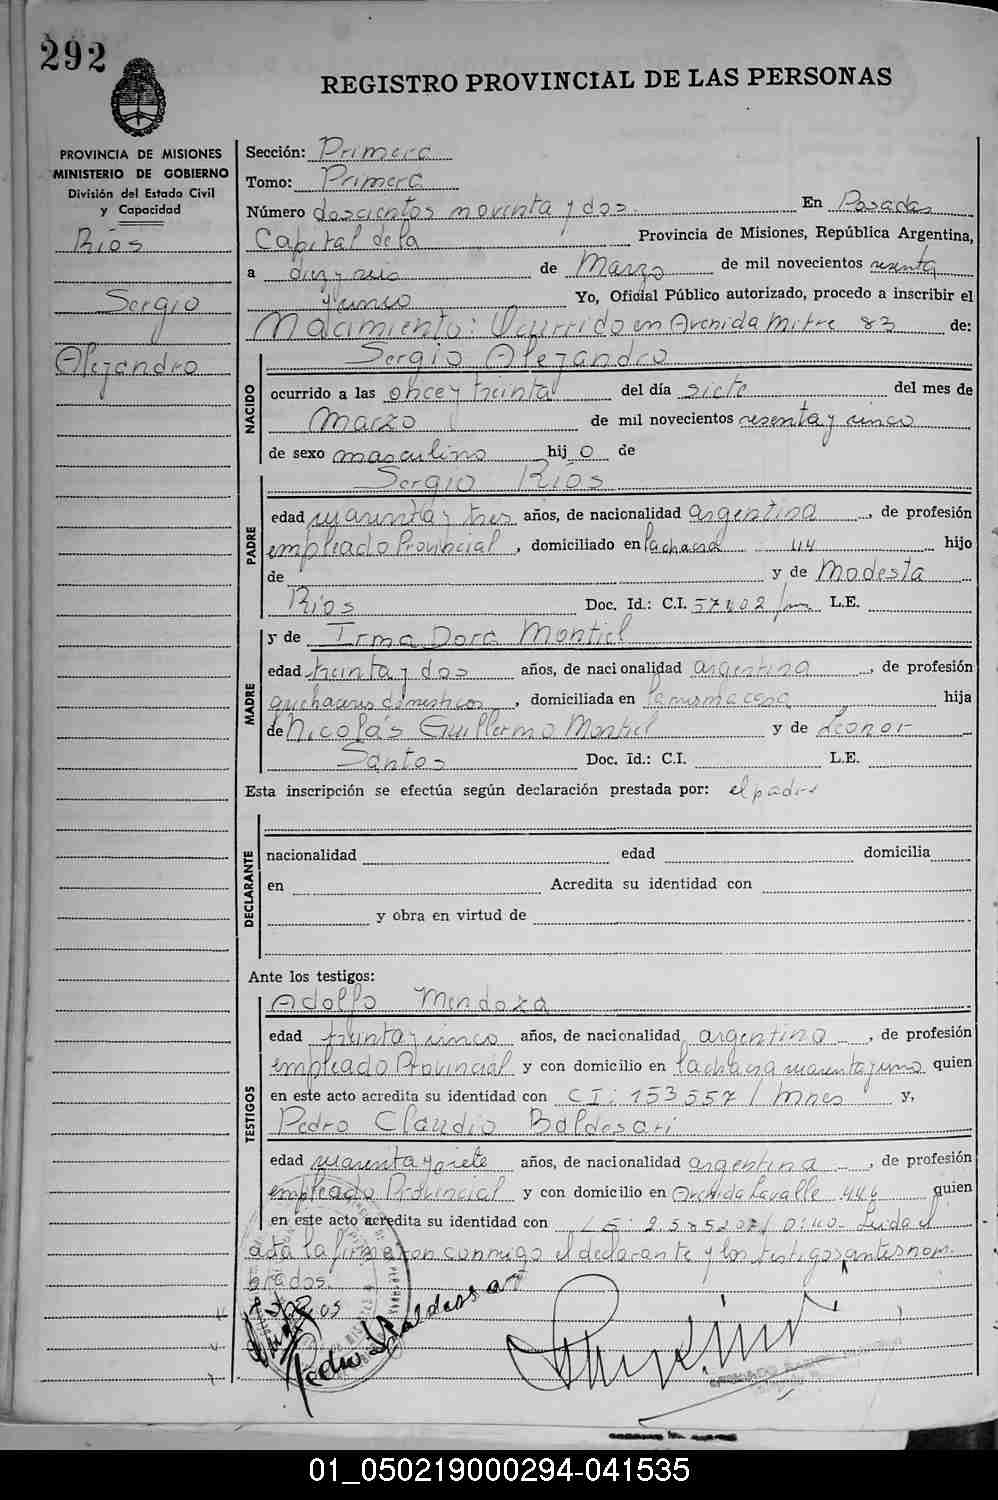 292
REGISTRO PROVINCIAL DE LAS PERSONAS
PROVINCIA DE MISIONES
MINISTERIO DE GOBIERNO
División del Estado Civil
y Capacidad
Ríos
Sergio
Alejandro
Sección: Primera
Tomo: Primera
Número doscientos noventa y dos En Posadas
Capital de la Provincia de Misiones, República Argentina,
a diez y seis de Marzo de mil novecientos sesenta
y cinco Yo, Oficial Público autorizado, procedo a inscribir el
Nacimiento: Ocurrido en Avenida Mitre 83 de:
Sergio Alejandro
NACIDO
ocurrido a las once y treinta del día siete del mes de
Marzo de mil novecientos sesenta y cinco
de sexo masculino hij o de
Sergio Ríos
PADRE
edad cuarenta y tres años, de nacionalidad argentina, de profesión
empleado Provincial, domiciliado en La chacra 44 hijo
de y de Modesta
Ríos Doc. Id.: C.I. 57402 / L.E.
y de Irma Dora Montiel
MADRE
edad treinta y dos años, de nacionalidad argentina, de profesión
quehaceres domésticos, domiciliada en la misma casa hija
de Nicolás Guillermo Montiel y de Leonor
Santos Doc. Id.: C.I. L.E.
Esta inscripción se efectúa según declaración prestada por: el padre
DECLARANTE
nacionalidad edad domicilia
en Acredita su identidad con
y obra en virtud de
Ante los testigos:
Adolfo Mendoza
TESTIGOS
edad treinta y cinco años, de nacionalidad argentino, de profesión
empleado Provincial y con domicilio en la chacra cuarenta y uno quien
en este acto acredita su identidad con CI: 153557 / Mnes y,
Pedro Claudio Baldesari
edad cuarenta y siete años, de nacionalidad argentina, de profesión
empleado Provincial y con domicilio en Avenida Lavalle 446 quien
en este acto acredita su identidad con Leida el
acta la firmaron conmigo el declarante y los testigos antes nom
brados.
Pedro Baldesari
01_050219000294-041535